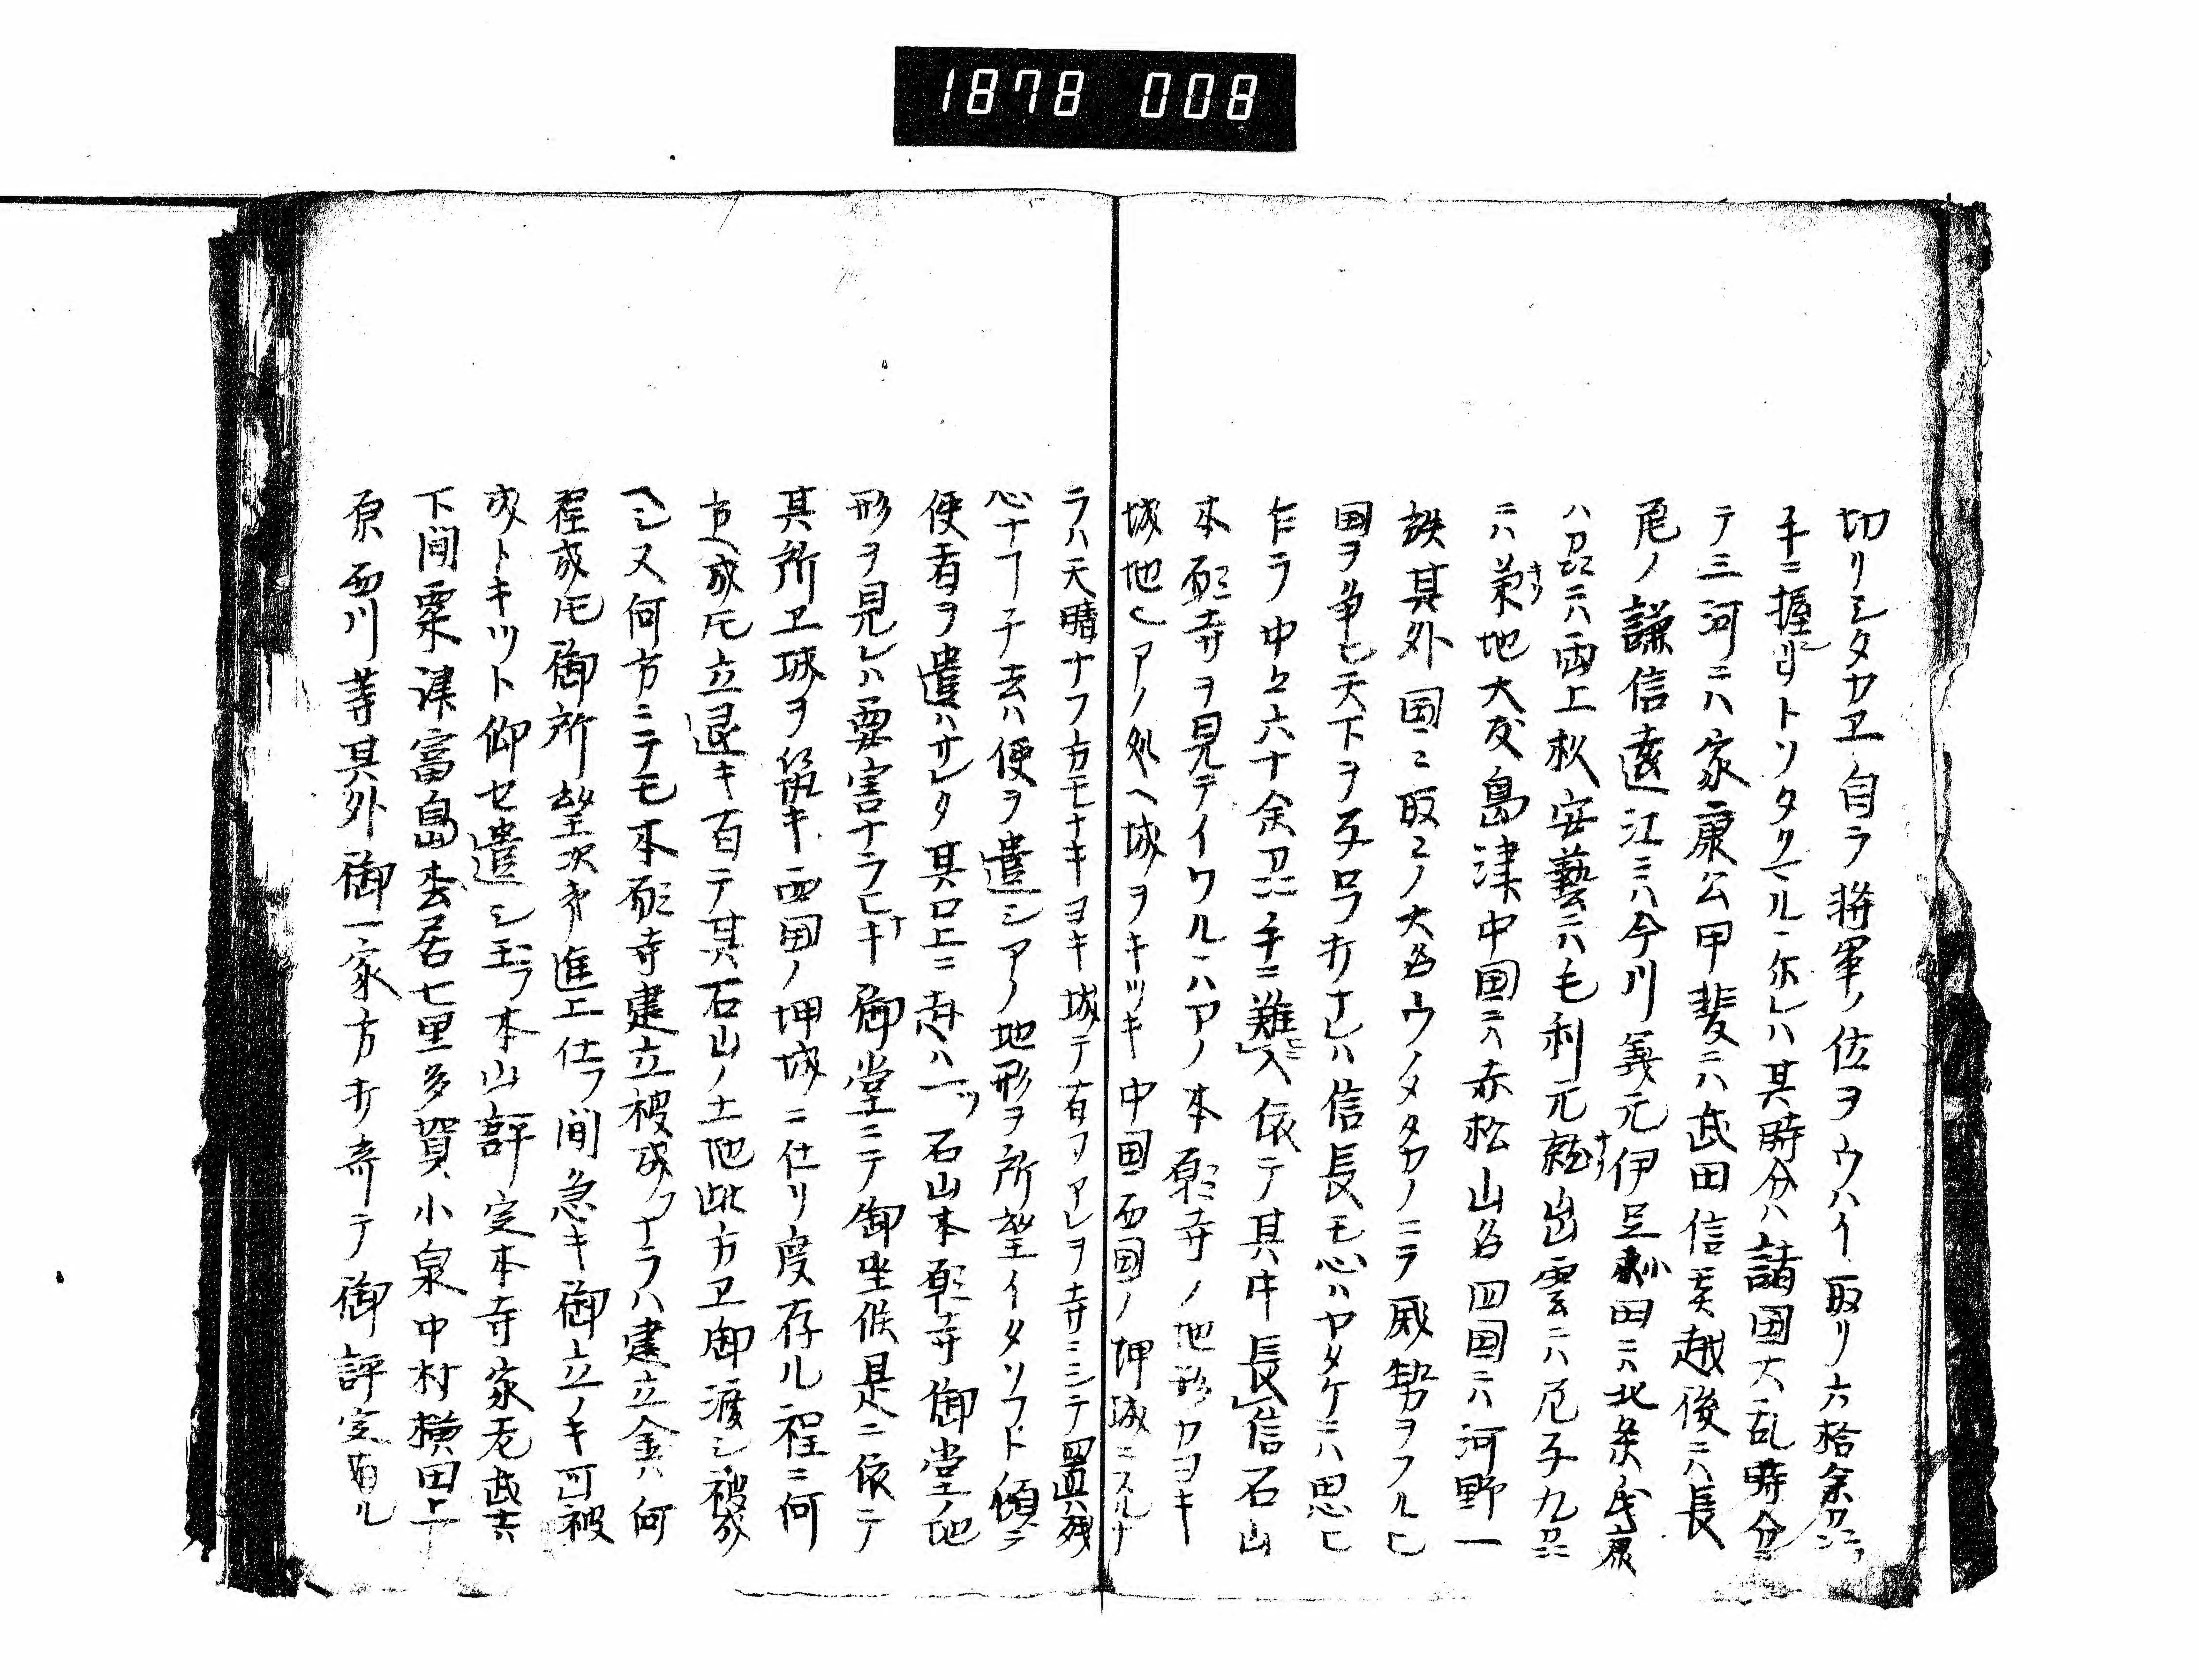 1878 008
切リシタカヱ自ラ将軍ノ位ヲウハイ取リ六拾余州ヲ
手ニ握リトソタクマルニ尓レハ其時分ハ諸国大乱時分ニ
テ三河ニハ家康公甲斐ニハ武田信玄越後ニハ長
尾ノ謙信遠江ニハ今川義元伊豆小田ニハ北条氏康
ハ州ニハ両上杉安藝ニハ毛利元就出雲ニハ尼子九州
ニハ菊地大友島津中国ニハ赤松山名四国ニハ河野一
族其外国〻取〻ノ大名ウノメタカノニラ威勢ヲフルヒ
国ヲ争ヒ天下ヲ オナレハ信長モ心ハヤタケニハ思ヒ
乍ラ中々六十余州手ニ難入依テ其中長信石山
本願寺ヲ見テイワルニハアノ本願寺ノ地形カヨキ
城地ヒアノ処ヘ城ヲキツキ中国西国ノ押城ニスルナ
ラハ天晴ナフ方モナキヨキ城テ有フアレヲ寺ニシテ置ハ残
心ナフ子去ハ便ヲ遣シアノ地形ヲ所望イタソフト傾テ
使者ヲ遣ハサレタ其口上ニ ハ一ツ石山本願寺御堂ノ地
形ヲ見レハ要害ナラヒナキ御堂ニテ御坐候是ニ依テ
其所ヱ城ヲ築キ西国ノ押城ニ仕リ度存ル程ニ何
方ヘ成トモ立退キ有テ其石山ノ土地此方ヱ御渡シ被成
ヘシ又何方ニテモ本願寺建立被成クナラハ建立金ハ何
程成トモ御所望次第進上仕フ間急キ御立ノキ可被
成トキツト仰セ遣シ玉フ本山評定本寺家老武士ハ
下間粟津富島 居七里多賀小泉中村横田上
原西川等其外御一家方オ寄テ御評定有ル